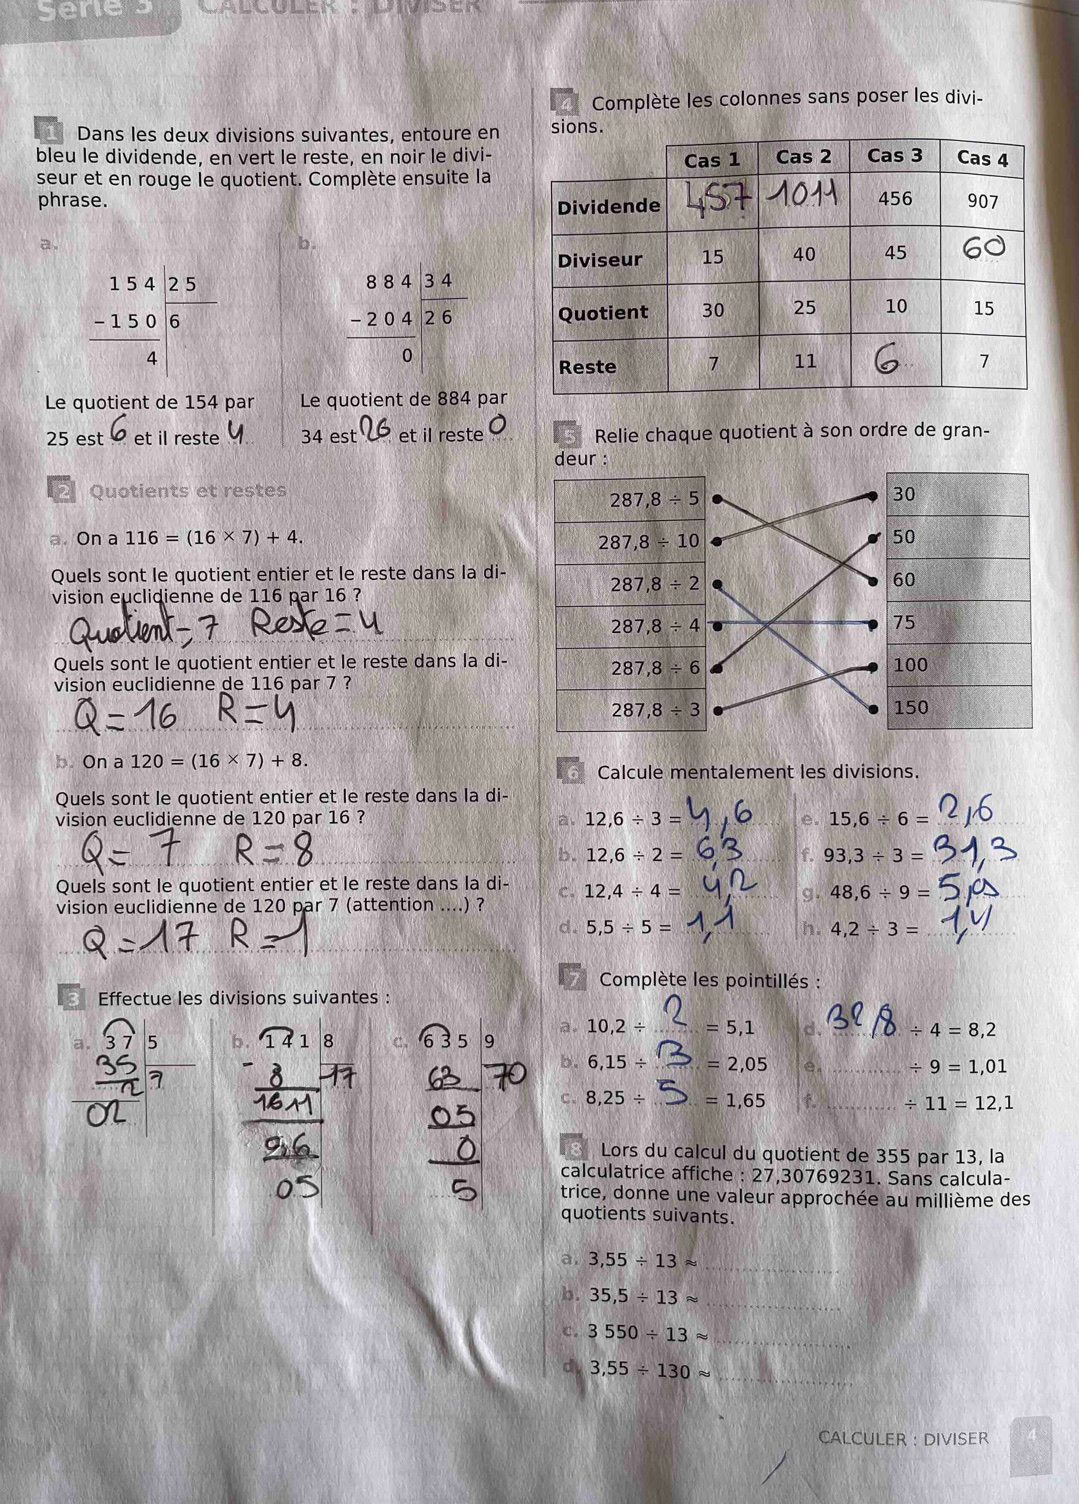 Série 3 CALCULER : DIVISER
1 Dans les deux divisions suivantes, entoure en
bleu le dividende, en vert le reste, en noir le divi-
seur et en rouge le quotient. Complète ensuite la
phrase.
a.
154 25
-150 6
4
Le quotient de 154 par
25 est 6 et il reste 4
b.
884 34
-204 26
0
Le quotient de 884 par
34 est 26 et il reste 0
2 Quotients et restes
a. On a 116 = (16 × 7) + 4.
Quels sont le quotient entier et le reste dans la di-
vision euclidienne de 116 par 16 ?
Quotient = 7 Reste = 4
Quels sont le quotient entier et le reste dans la di-
vision euclidienne de 116 par 7 ?
Q = 16 R = 4
b. On a 120 = (16 × 7) + 8.
Quels sont le quotient entier et le reste dans la di-
vision euclidienne de 120 par 16 ?
Q = 7 R = 8
Quels sont le quotient entier et le reste dans la di-
vision euclidienne de 120 par 7 (attention ....) ?
Q = 17 R = 1
3 Effectue les divisions suivantes :
a. 37 5
35 7
02
b. 141 8
- 8 17
05
c. 635 9
63 70
05
0
5
4 Complète les colonnes sans poser les divi-
sions.
Cas 1 Cas 2 Cas 3 Cas 4
Dividende 457 1011 456 907
Diviseur 15 40 45 60
Quotient 30 25 10 15
Reste 7 11 6 7
5 Relie chaque quotient à son ordre de gran-
deur :
287,8 ÷ 5 30
287,8 ÷ 10 50
287,8 ÷ 2 60
287,8 ÷ 4 75
287,8 ÷ 6 100
287,8 ÷ 3 150
6 Calcule mentalement les divisions.
a. 12,6 ÷ 3 = 4,6 e. 15,6 ÷ 6 = 2,6
b. 12,6 ÷ 2 = 6,3 f. 93,3 ÷ 3 = 31,3
c. 12,4 ÷ 4 = 4,2 g. 48,6 ÷ 9 =
d. 5,5 ÷ 5 = 1,1 h. 4,2 ÷ 3 = 1,4
7 Complète les pointillés :
a. 10,2 ÷ 2 = 5,1 d. 32,8 ÷ 4 = 8,2
b. 6,15 ÷ 3 = 2,05 e. ............ ÷ 9 = 1,01
c. 8,25 ÷ 5 = 1,65 f. ............ ÷ 11 = 12,1
8 Lors du calcul du quotient de 355 par 13, la
calculatrice affiche : 27,30769231. Sans calcula-
trice, donne une valeur approchée au millième des
quotients suivants.
a. 3,55 ÷ 13 ≈
b. 35,5 ÷ 13 ≈
c. 3 550 ÷ 13 ≈
d. 3,55 ÷ 130 ≈
CALCULER : DIVISER 4